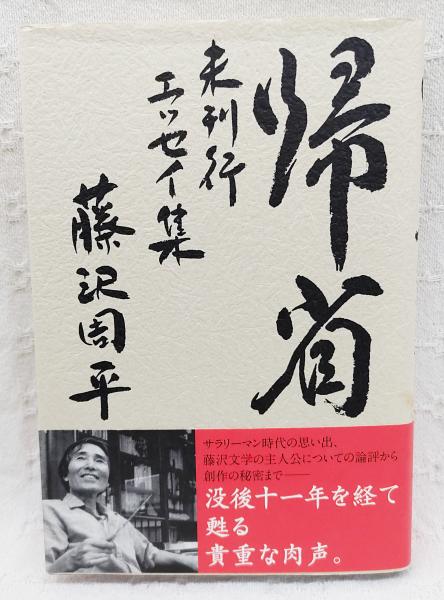 帰省
未刊行
エッセイ集
藤沢周平
サラリーマン時代の思い出、
藤沢文学の主人公についての論評から
創作の秘密まで――
没後十一年を経て
甦る
貴重な肉声。